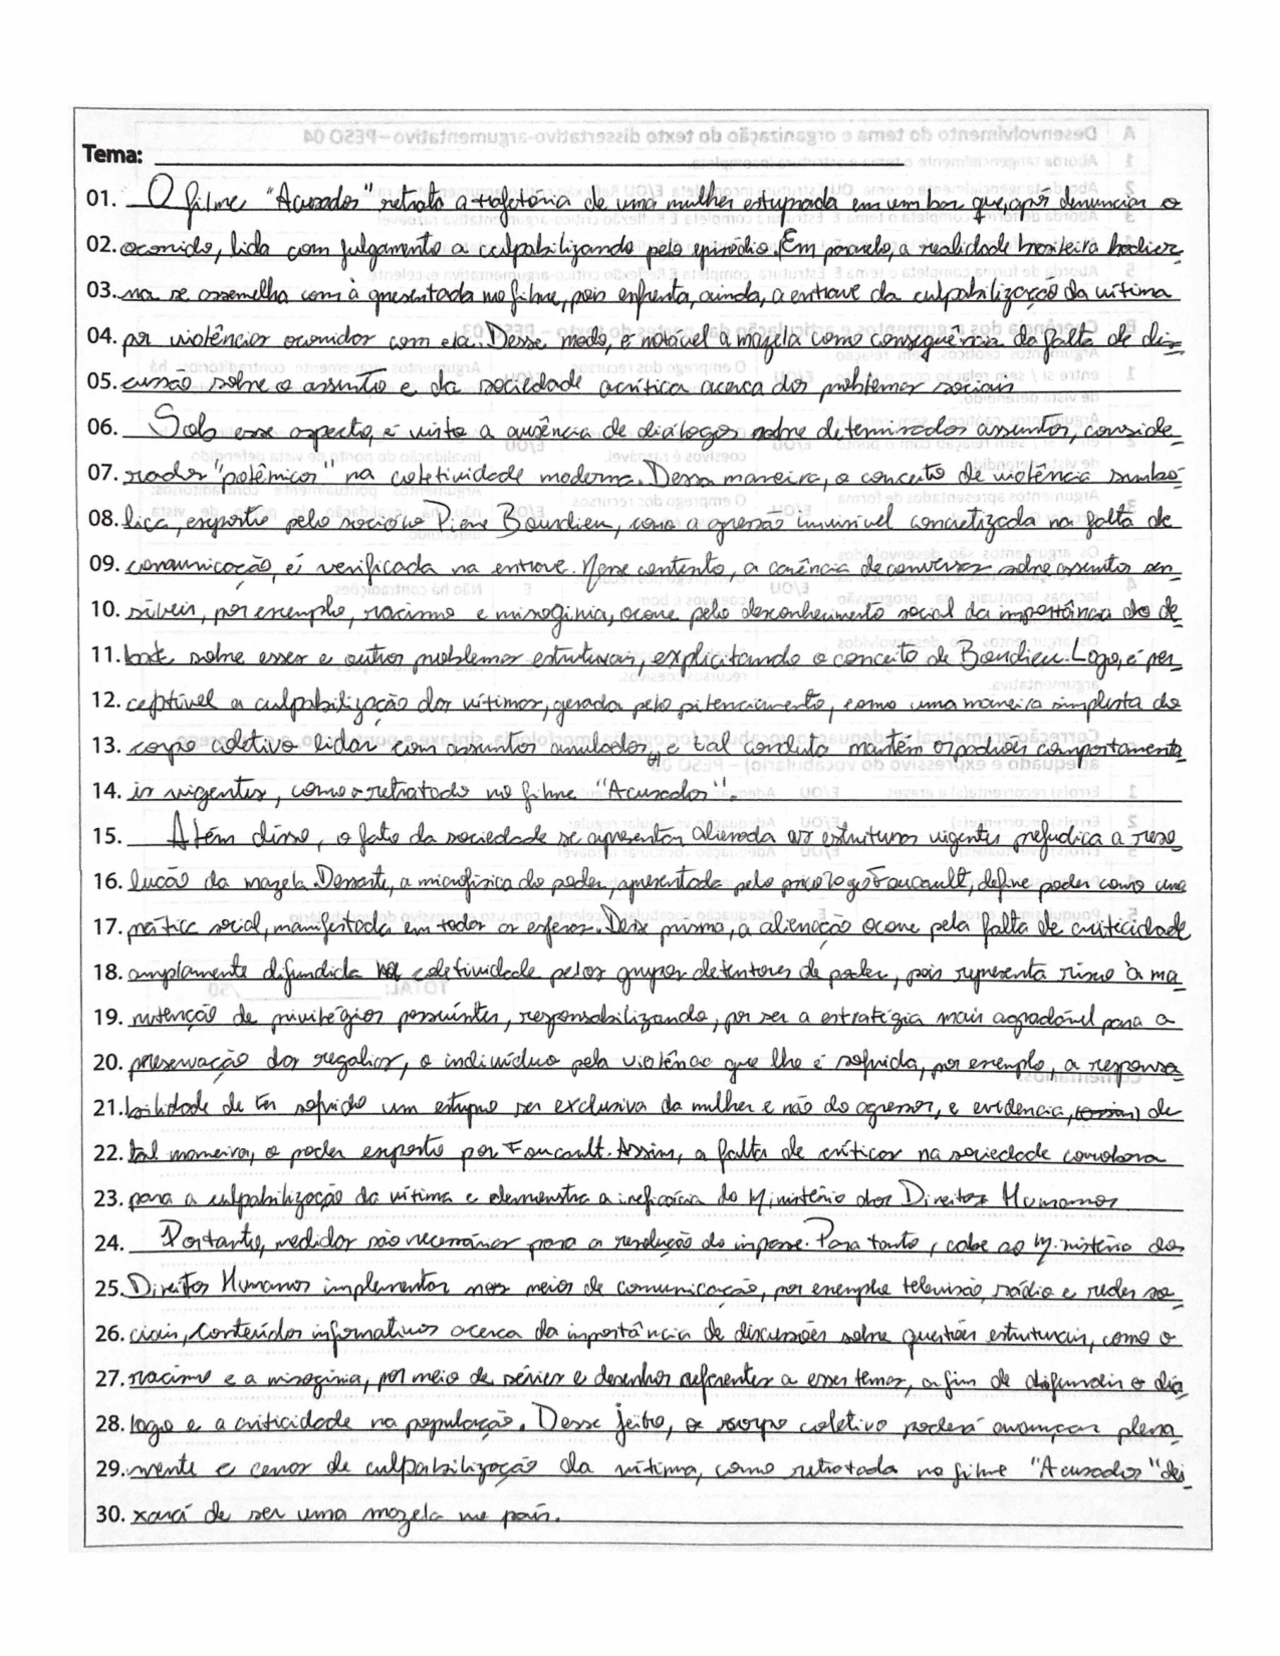 Tema:
01. O filme "Acusados" retrata a trajetória de uma mulher estuprada em um bar que, após denunciar o
02. ocorrido, lida com julgamento a culpabilizando pelo episódio. Em paralelo, a realidade brasileira hodier-
03. na se assemelha com à apresentada no filme, pois enfrenta, ainda, o entrave da culpabilização da vítima
04. por violências ocorridas com ela. Desse modo, é notável a mazela como consequência da falta de dis-
05. cussão sobre o assunto e da sociedade acrítica acerca dos problemas sociais
06. Sob esse aspecto, é visto a ausência de diálogos sobre determinados assuntos, conside-
07. rados "polêmicos" na coletividade moderna. Dessa maneira, o conceito de violência simbó-
08. lica, exposto pelo sociólo Pierre Bourdieu, como a agressão invisível concretizada na falta de
09. comunicação, é verificada na entrave. Nesse contexto, a carência de conversas sobre assuntos sen-
10. síveis, por exemplo, racismo e misoginia, ocorre pelo desconhecimento social da importância do de-
11. bate sobre esses e outros problemas estruturais, explicitando o conceito de Bourdieu. Logo, é per-
12. ceptível a culpabilização das vítimas, gerada pelo silenciamento, como uma maneira simplista do
13. corpo coletivo lidar com assuntos anulados, e tal conduta mantém os padrões comportamenta
14. is vigentes, como o retratado no filme "Acusados".
15. Além disso, o fato da sociedade se apresentar alienada as estruturas vigentes prejudica a reso-
16. lucão da mazela. Dessarte, a microfísica do poder, apresentada pelo psicólogo Foucault, define poder como uma
17. prática social, manifestada em todas as esferas. Desse prisma, a alienação ocorre pela falta de criticidade
18. amplamente difundida na coletividade pelos grupos detentores de poder, pois representa risco à ma-
19. nutenção de privilégios persuintes, responsabilizando, por ser a estratégia mais agradável para a
20. preservação das regalias, o indivíduo pela violência que lhe é sofrida, por exemplo, a responsa
21. bilidade de ter sofrido um estupro ser exclusiva da mulher e não do agressor, e evidencia, de
22. tal maneira, o poder exposto por Foucault. Assim, a falta de críticas na sociedade corrobora
23. para a culpabilização da vítima e demonstra a ineficácia do Ministério dos Direitos Humanos
24. Portanto, medidas são necessárias para a resolução do impasse. Para tanto, cabe ao Ministério dos
25. Direitos Humanos implementar nos meios de comunicação, por exemplo televisão, rádio e redes so-
26. ciais, conteúdos informativos acerca da importância de discussões sobre questões estruturais, como o
27. racismo e a misoginia, por meio de séries e desenhos referentes a esses temas, a fim de difundir o diá-
28. logo e a criticidade na população. Desse jeito, o corpo coletivo poderá avançar plena-
29. mente e casos de culpabilização da vítima, como retratada no filme "Acusados" dei-
30. xará de ser uma mazela no país.